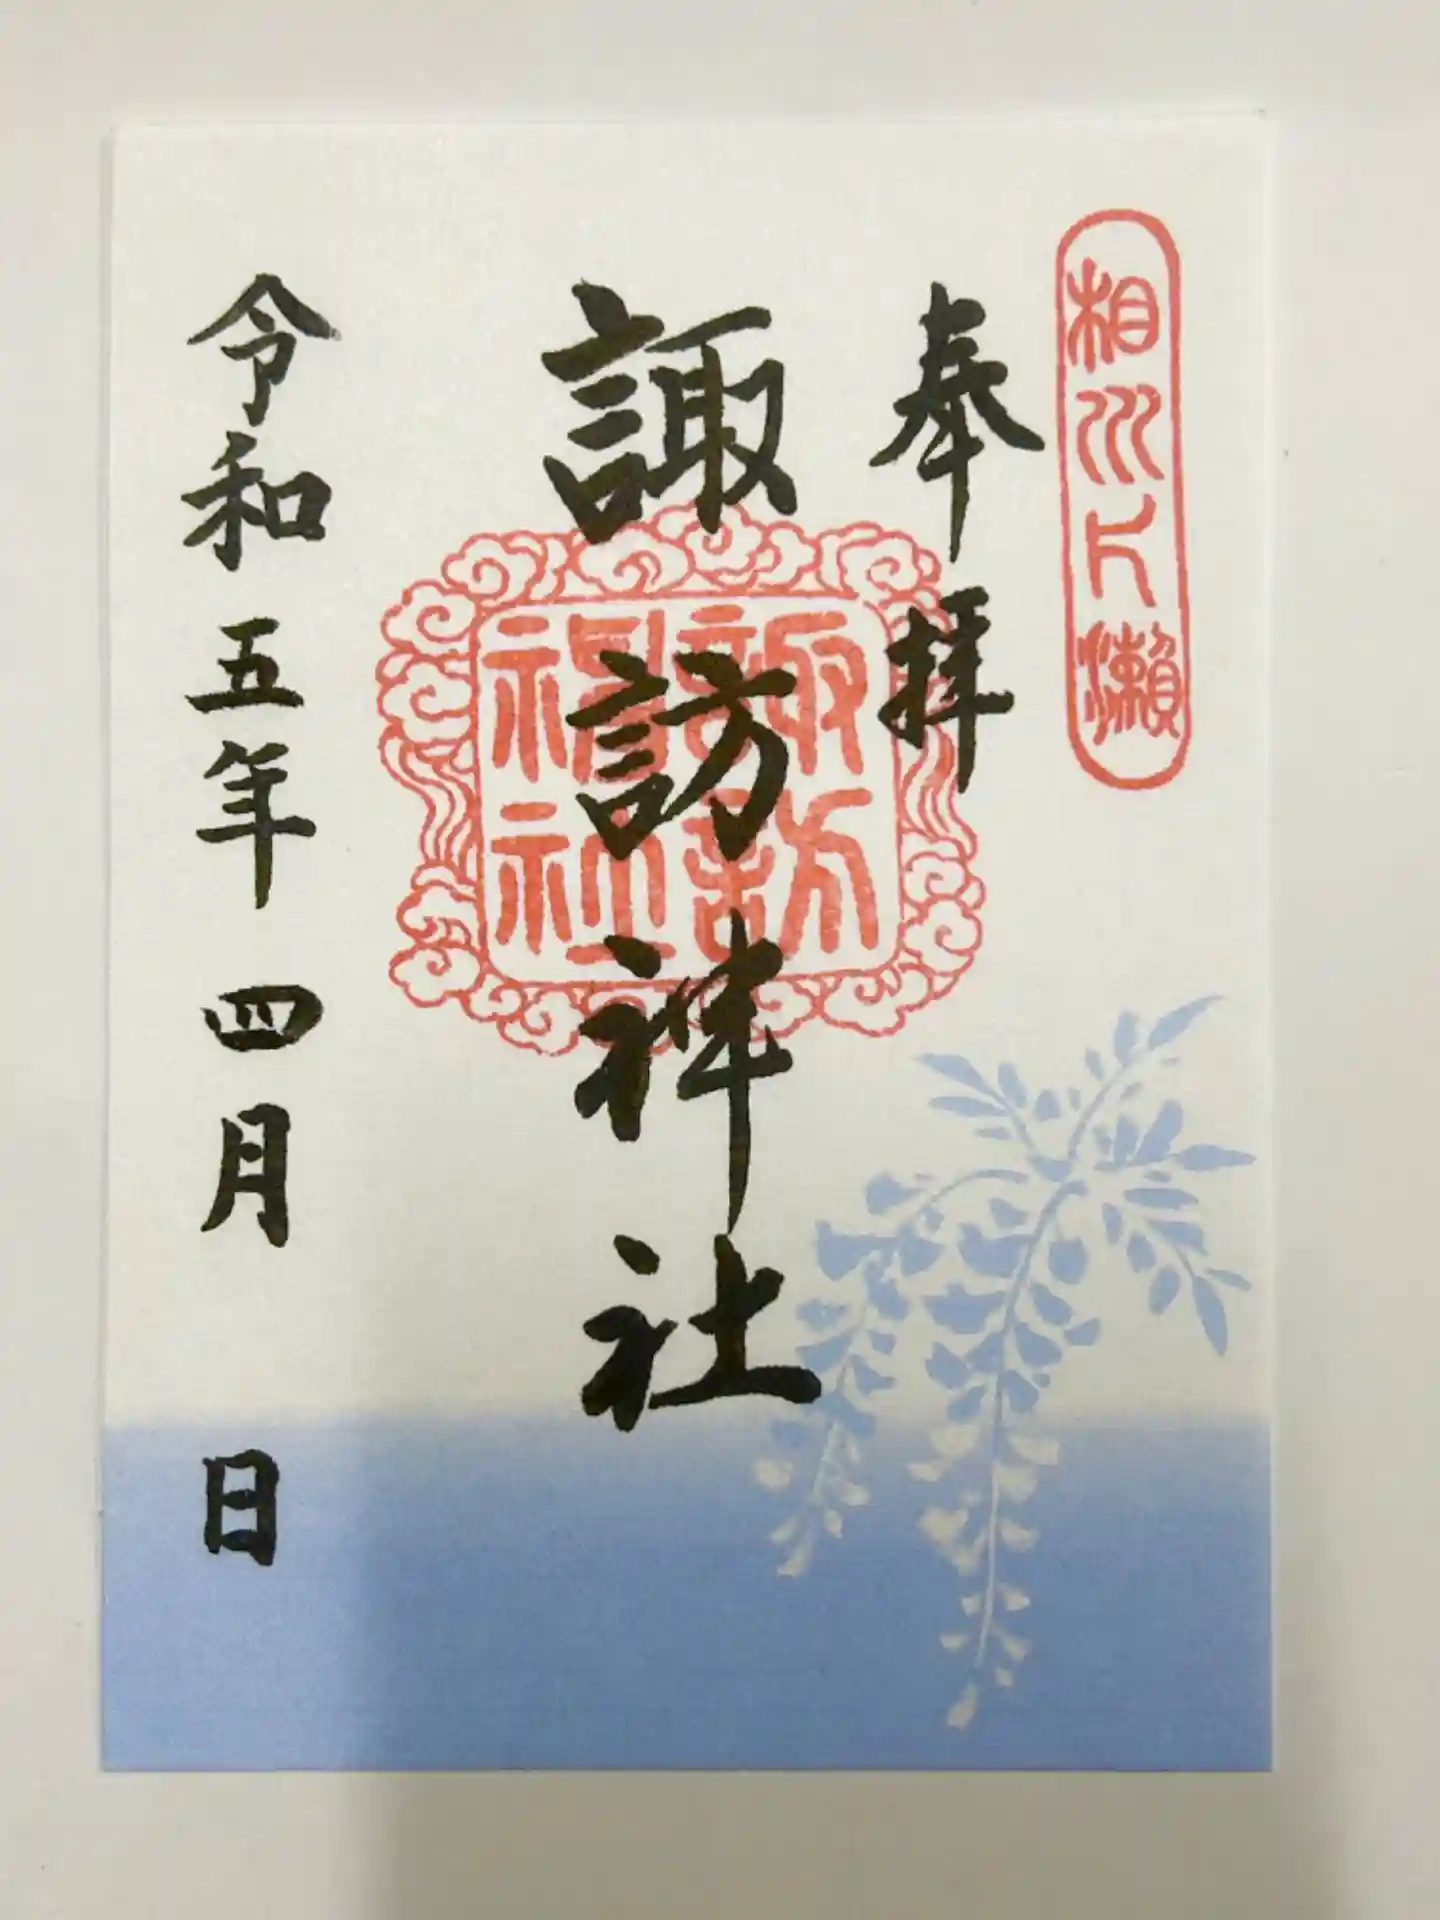 相州片瀬
奉拝
諏訪神社
諏訪神社
令和五年四月 日